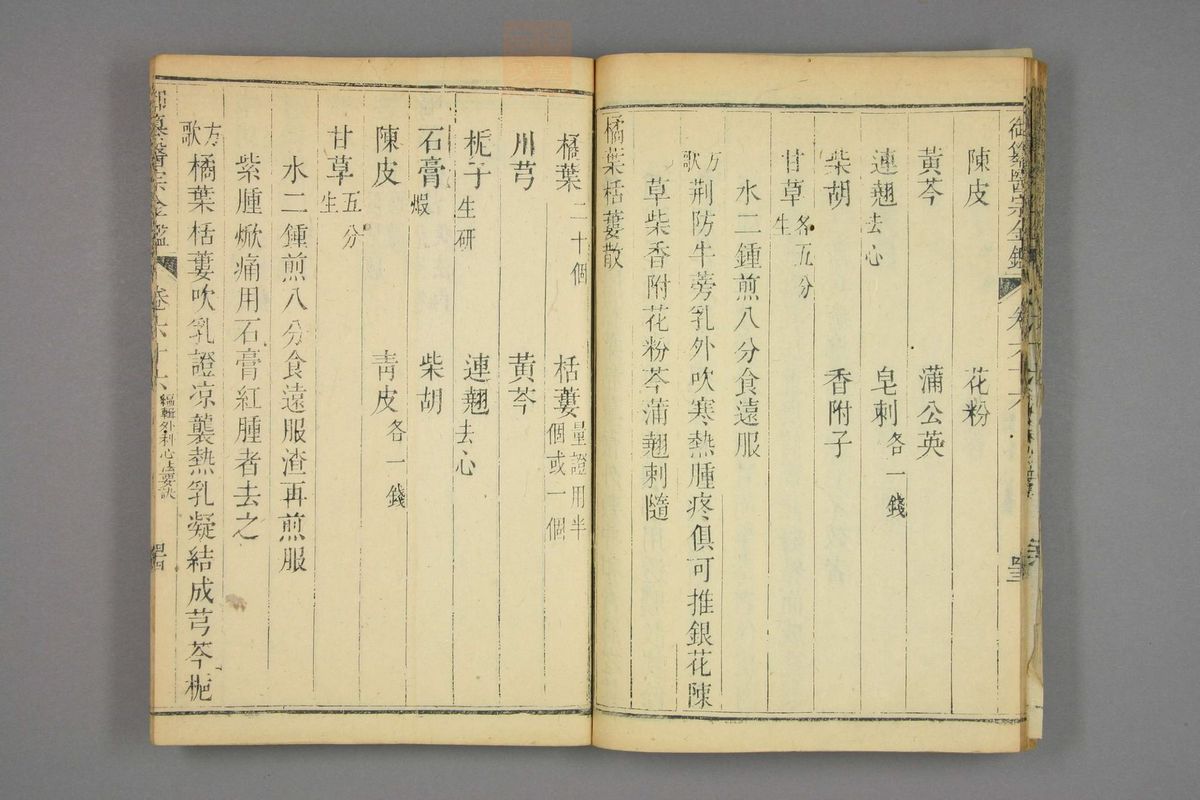 御纂醫宗金鑑 卷六十六 四三
陳皮 花粉
黃芩 蒲公英
連翹去心 皂刺各一錢
柴胡 香附子
甘草生各五分
水二鍾煎八分食遠服
方歌荆防牛蒡乳外吹寒熱腫疼俱可推銀花陳
草柴香附花粉芩蒲翹刺隨
橘葉栝蔞散
橘葉二十個 栝蔞量證用半個或一個
川芎 黃芩
梔子生研 連翹去心
石膏煆 柴胡
陳皮 青皮各一錢
甘草生五分
水二鍾煎八分食遠服渣再煎服
紫腫焮痛用石膏紅腫者去之
方歌橘葉栝蔞吹乳證凉襲熱乳凝結成芎芩梔
御纂醫宗金鑑 卷六十六 編輯外科心法要訣 四四